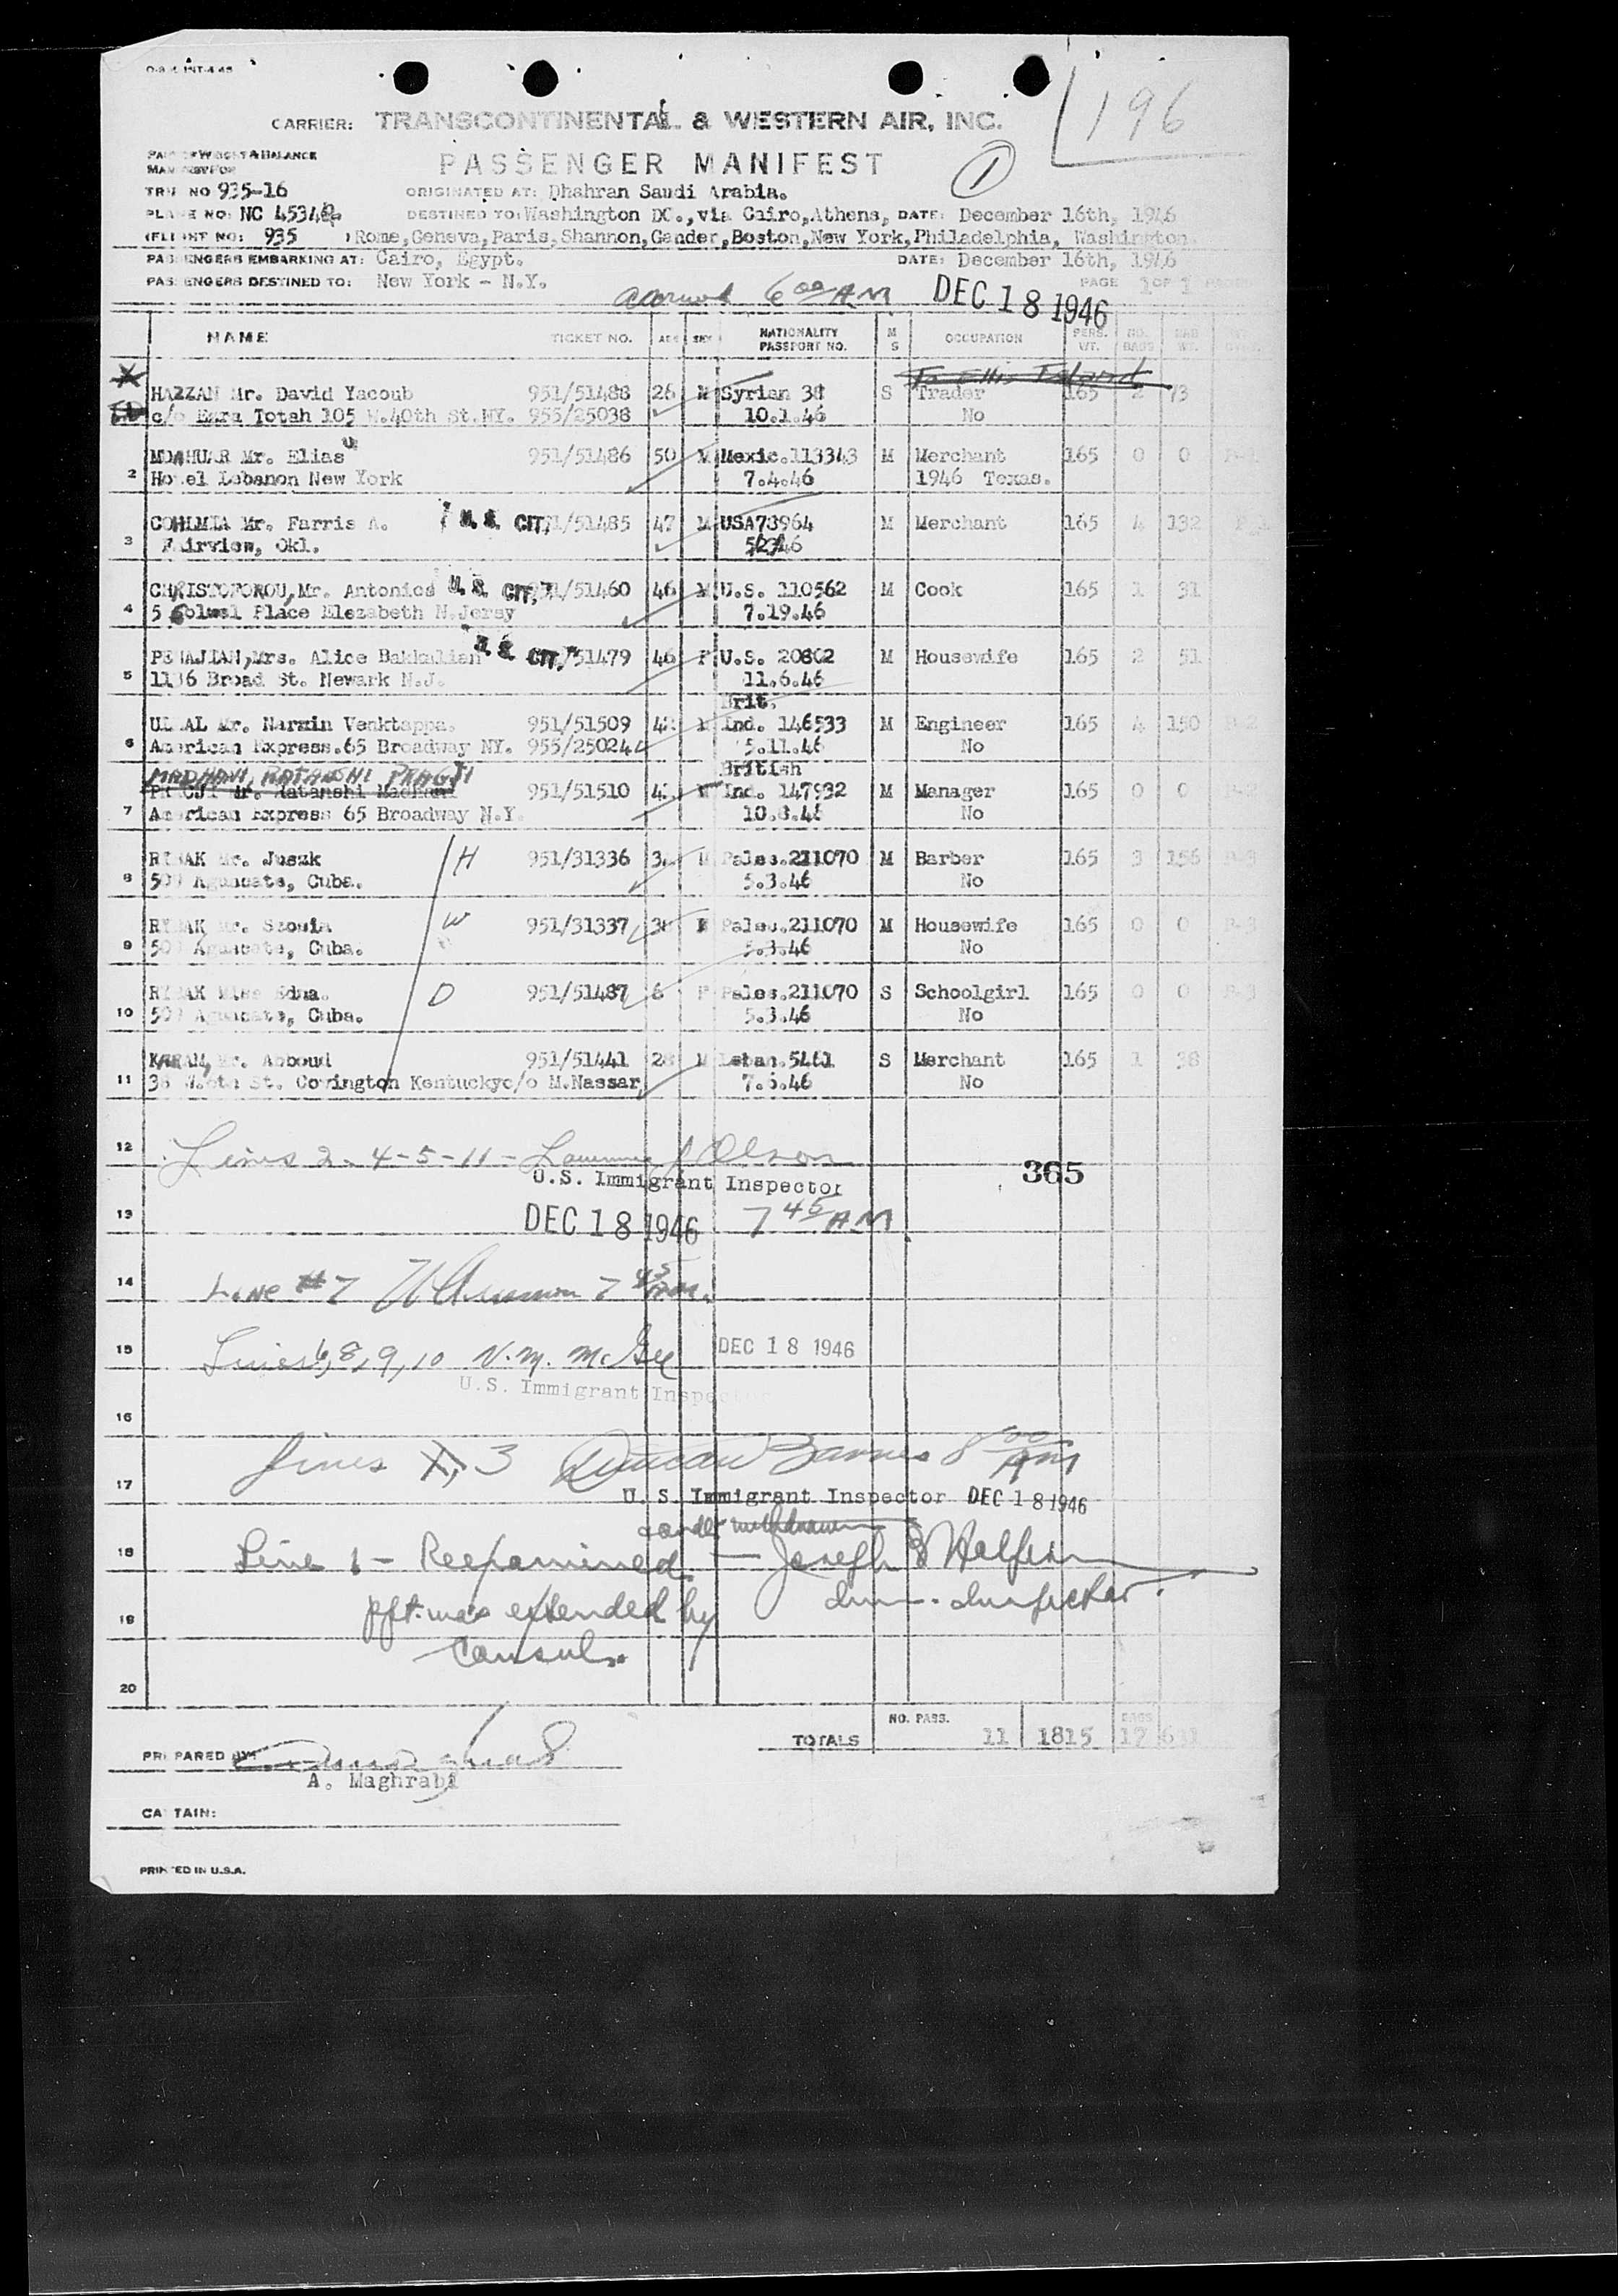 196
CARRIER: TRANSCONTINENTAL & WESTERN AIR, INC.
PASSENGER MANIFEST
1
TRIP NO 935-16 ORIGINATED AT: Dhahran Saudi Arabia.
PLANE NO: NC 4534 DESTINED TO: Washington DC., via Cairo, Athens, DATE: December 16th, 1946
(FLIGHT NO: 935 ) Rome, Geneva, Paris, Shannon, Gander, Boston, New York, Philadelphia, Washington.
PASSENGERS EMBARKING AT: Cairo, Egypt. DATE: December 16th, 1946
PASSENGERS DESTINED TO: New York - N.Y. PAGE 1 OF 1
6 00 AM DEC 18 1946
NAME TICKET NO. AGE SEX NATIONALITY PASSPORT NO. M S OCCUPATION PERS. WT. NO. BAGS BAG WT.
To Ellis Island
HAZZAN Mr. David Yacoub 951/51488 26 M Syrian 38 S Trader 165 2 73
c/o Ezra Totah 105 W.40th St.NY. 955/25038 10.1.46 No
MOAHUAR Mr. Elias 951/51486 50 M Mexic.113343 M Merchant 165 0 0
2 Hotel Lebanon New York 7.4.46 1946 Texas.
COHLMIA Mr. Farris A. U.S. CIT. /51485 47 M USA73964 M Merchant 165 4 132
3 Fairview, Okl. 5/23/46
CHRISTOFOROU, Mr. Antonios U.S. CIT. /51460 46 M U.S. 110562 M Cook 165 1 31
4 5 Place Elezabeth N.Jersy 7.19.46
PENAJIAN, Mrs. Alice Bakkalian U.S. CIT. /51479 46 F U.S. 20802 M Housewife 165 2 51
5 1136 Broad St. Newark N.J. 11.6.46
Brit.
ULLAL Mr. Narxin Venktappa. 951/51509 Ind. 146533 M Engineer 165 4 150
6 American Express.65 Broadway NY. 955/25024 5.11.46 No
MADHANI, RATANSHI PRAGJI British
PRAGJI Mr. Ratanshi Madhani 951/51510 Ind. 147932 M Manager 165 0 0
7 American Express 65 Broadway N.Y. 10.8.46 No
RYBAK Mr. Juszk H 951/31336 Pales.211070 M Barber 165 3 156
8 Aguacate, Cuba. 5.3.46 No
RYBAK Mr. Szosia W 951/31337 Pales.211070 M Housewife 165 0 0
9 Aguacate, Cuba. 5.3.46 No
RYBAK Miss Edna. D 951/51487 6 F Pales.211070 S Schoolgirl 165 0 0
10 Aguacate, Cuba. 5.3.46 No
KARAM, Mr. Abboud 951/51441 28 M Leban.5461 S Merchant 165 1 38
11 St. Covington Kentucky c/o M.Nassar No
12 Lines 2-4-5-11 - Olson
U.S. Immigrant Inspector 365
13 DEC 18 1946 7 45 AM
14 Line #7 7 45
15 Lines 6, 8, 9, 10 V.M. McGee DEC 18 1946
U.S. Immigrant Inspector
16
Lines 1, 3 Duncan Barnes 8 00 AM
17 U. S. Immigrant Inspector DEC 18 1946
withdrawn
18 Line 1 - Reexamined - Joseph Halfern
19 ppt. was extended by Imm. Inspector.
Consul.
20
TOTALS NO. PASS. 11 1815 BAGS 17 631
PREPARED BY:
A. Maghrabi
CAPTAIN:
PRINTED IN U.S.A.